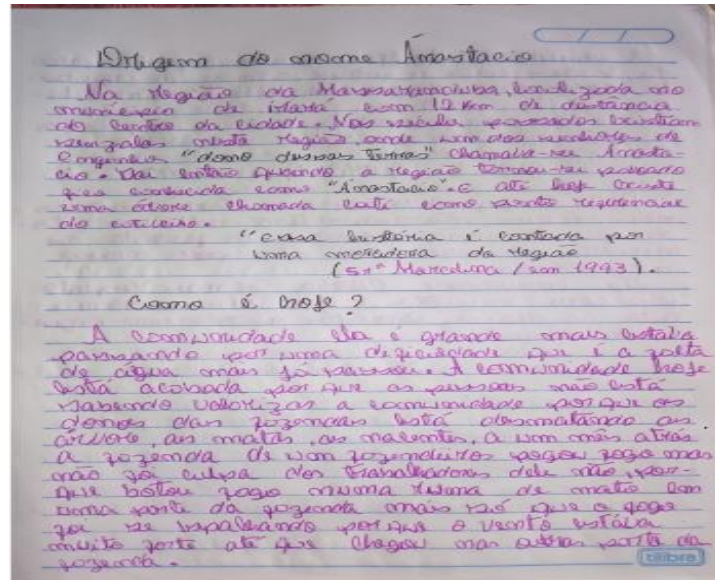 Origem do nome Anastacio
Na região da Massaranduba, localizada no
município de Irará com 12 Km de distância
do centro da cidade. Nos século passados existiam
senzalas nesta região, onde um dos senhores de
Engenhos "dono dessas terras" chamava-se Anasta-
cio. Daí então quando a região tornou-se povoado
ficou conhecida como "Anastacio". E até hoje existe
uma árvore chamada como ponto
do
"essa história é contada por
uma moradora da região
(Srª Marcelina / em 1993).
Como é hoje?
A comunidade ela é grande mais estava
passando por uma dificuldade que é a falta
de água mais já passou. A comunidade hoje
está acabada por que as pessoas não está
sabendo valorizar a comunidade por que os
donos das fazendas está desmatando as
árvore, as matas, as nacentes, a um mês atrás
a fazenda de um fazendeiros pegou fogo mas
não foi culpa dos trabalhadores dele não, por-
que botou fogo numa de mato em
uma parte da fazenda mais só que o fogo
foi se espalhando porque o vento estava
muito forte até que chegou nas outras parte da
fazenda.
tilibra